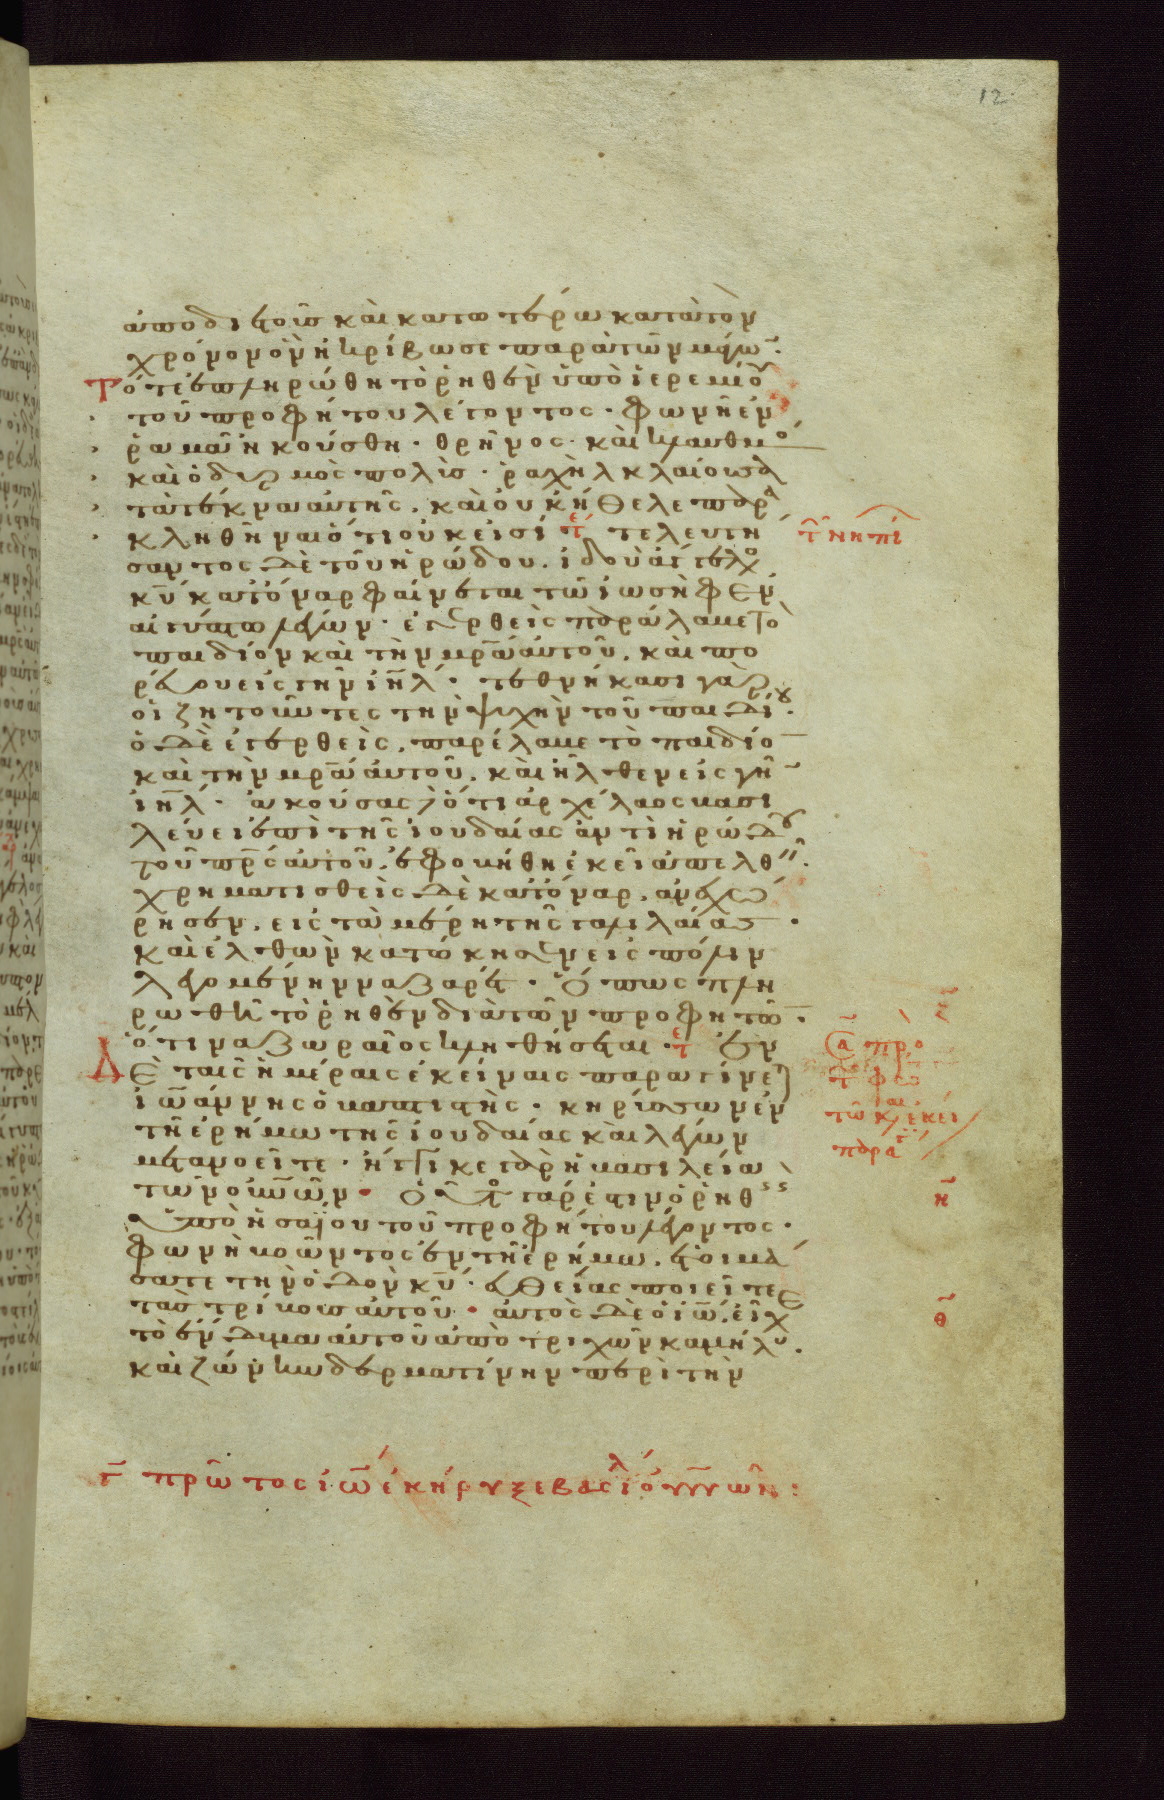 12
ἀπὸ διετοῦς καὶ κατωτέρω κατὰ τὸν
χρόνον ὃν ἠκρίβωσε παρὰ τῶν μάγω̅.
Τότε ἐπληρώθη τὸ ῥηθὲν ὑπὸ ἱερεμίου
τοῦ προφήτου λέγοντος· φωνὴ ἐν
ῥαμᾶ ἠκούσθη· θρῆνος· καὶ κλαυθμὸ
καὶ ὀδυρμὸς πολὺς· ῥαχὴλ κλαίουσα
τὰ τέκνα αὐτῆς, καὶ οὐκ ἤθελε παρα
κληθῆναι ὅτι οὐκ εἰσί τε̅ τελευτή
τ̅ νηπί
σαντος δὲ τοῦ ἡρώδου. ἰδοὺ ἄγγελος
κ̅υ̅ κατ᾽ὄναρ φαίνεται τῶ ἰωσὴφ ἐν
αἰγύπτω λέγων· ἐγερθεὶς παράλαβε τὸ
παιδίον καὶ τὴν μ̅ρ̅α̅ αὐτοῦ, καὶ πο
ρεύου εἰς γῆν ἰ̅η̅λ̅· τεθνήκασι γὰρ
οἱ ζητοῦντες τὴν ψυχὴν τοῦ παιδίου.
ὁ δὲ ἐγερθεὶς, παρέλαβε τὸ παιδίο̅
καὶ τὴν μ̅ρ̅α̅ αὐτοῦ, καὶ ἦλθεν εἰς γῆ̅
ἰ̅η̅λ̅· ἀκούσας δὲ ὅτι ἀρχέλαος βασι
λεύει ἐπὶ τῆς ἰουδαίας ἀντὶ ἡρώδου
τοῦ π̅ρ̅ς̅ αὐτοῦ, ἐφοβήθη ἐκεῖ ἀπελθεῖν.
χρηματισθεὶς δὲ κατ᾽ὄναρ, ἀνεχώ
ρησεν, εἰς τὰ μέρη τῆς γαλιλαίας·
καὶ ἐλθὼν κατώκησεν εἰς πόλιν
λεγομένην ναζαρέτ· ὅπως πλη
ρωθῆ τὸ ῥηθὲν διὰ τῶν προφητῶ̅.
ζ̅
ὅτι ναζωραῖος κληθήσεται· τε̅ Ἐν
Δὲ ταῖς ἡμέραις ἐκείναις παραγίνεται
ἰω̅άννης ὁ βαπτιστὴς· κηρύσσων ἐν
τῆ ἐρήμω τῆς ἰουδαίας καὶ λέγων
μετανοεῖτε· ἤγγικε γὰρ ἡ βασιλεία
τῶν ο̅υ̅ν̅ῶν· οὗτος γάρ ἐστιν ὁ ῥηθεὶς
η̅
ὑπὸ ἠσαΐου τοῦ προφήτου λέγοντος·
φωνὴ βοῶντος ἐν τῆ ἐρήμω, ἑτοιμά
σατε τὴν ὁδὸν κ̅υ̅· εὐθείας ποιεῖτε
τὰς τρίβους αὐτοῦ· αὐτὸς δὲ ὁ ἰω̅, εἶχε
θ̅
τὸ ἔνδυμα αὐτοῦ ἀπὸ τριχῶν καμήλου.
καὶ ζώνην δερματίνην περὶ τὴν
γ̅ πρῶτος ἰω̅ ἐκήρυξε βασιλεί ο̅υ̅ν̅ων: